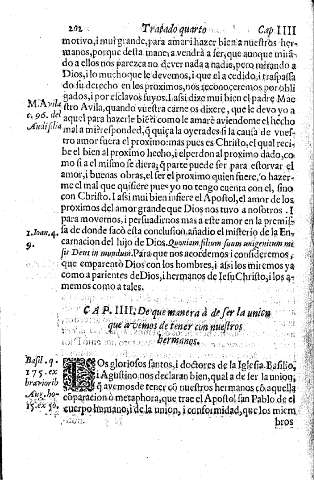 202 Tratado quarto Cap IIII
motivo, i mui grande, para amar i hazer bien a nuestros her-
manos, porque desta manera vendrà a ser, que aunque mirã-
do a ellos nos parezca no dever nada a nadie, pero mirando a
Dios, i lo mucho que le devemos, i que el a cedido, i traspassa
do su derecho en los proximos, nos reconoceremos por obli
gados, i por esclavos suyos. I assi dize mui bien el padre Mae
M. Avila stro Avila, quando vuestra carne os dixere, que le devo yo a
c. 96. del aquel para hazerle biẽ? i como le amarè aviendome el hecho
Audi filia mal? responded, q̃ quiça la oyerades si la causa de vues-
tro amor fuera el proximo: mas pues es Christo, el qual reci-
be el bien al proximo hecho, i el perdon al proximo dado, co-
mo si a el mismo se diera, q̃ parte puede ser para estorvar el
amor, i buenas obras, el ser el proximo quien fuere, ò hazer-
me el mal que quisiere pues yo no tengo cuenta con el, sino
con Christo. I assi mui bien infiere el Apostol, el amor de los
proximos del amor grande que Dios nos tuvo a nosotros. I
1. Ioan. 4. para movernos, i persuadirnos mas a este amor en la premis-
9. sa de donde sacò esta conclusion. añadio el misterio de la En-
carnacion del hijo de Dios. Quoniam filium suum unigenitum mi
sit Deus in mundum. Para que nos acordemos i consideremos,
que emparentò Dios con los hombres, i assi los miremos ya
como a parientes de Dios, i hermanos de Iesu Christo, i los a-
memos como a tales.
CAP. IIII. De que manera à de ser la union
que avemos de tener con nuestros
hermanos.
Basil. q. LOs gloriosos santos, i doctores de la Iglesia Basilio,
175. ex i Agustino nos declaran bien, qual a de ser la union,
brevioribꝰ q̃ avemos de tener cõ nuestros hermanos cõ aquella
Aug. ho- cõparacion ò metaphora, que trae el Apostol san Pablo de el
15. ex 50. cuerpo humano, i de la union, i conformidad, que los miem
bros